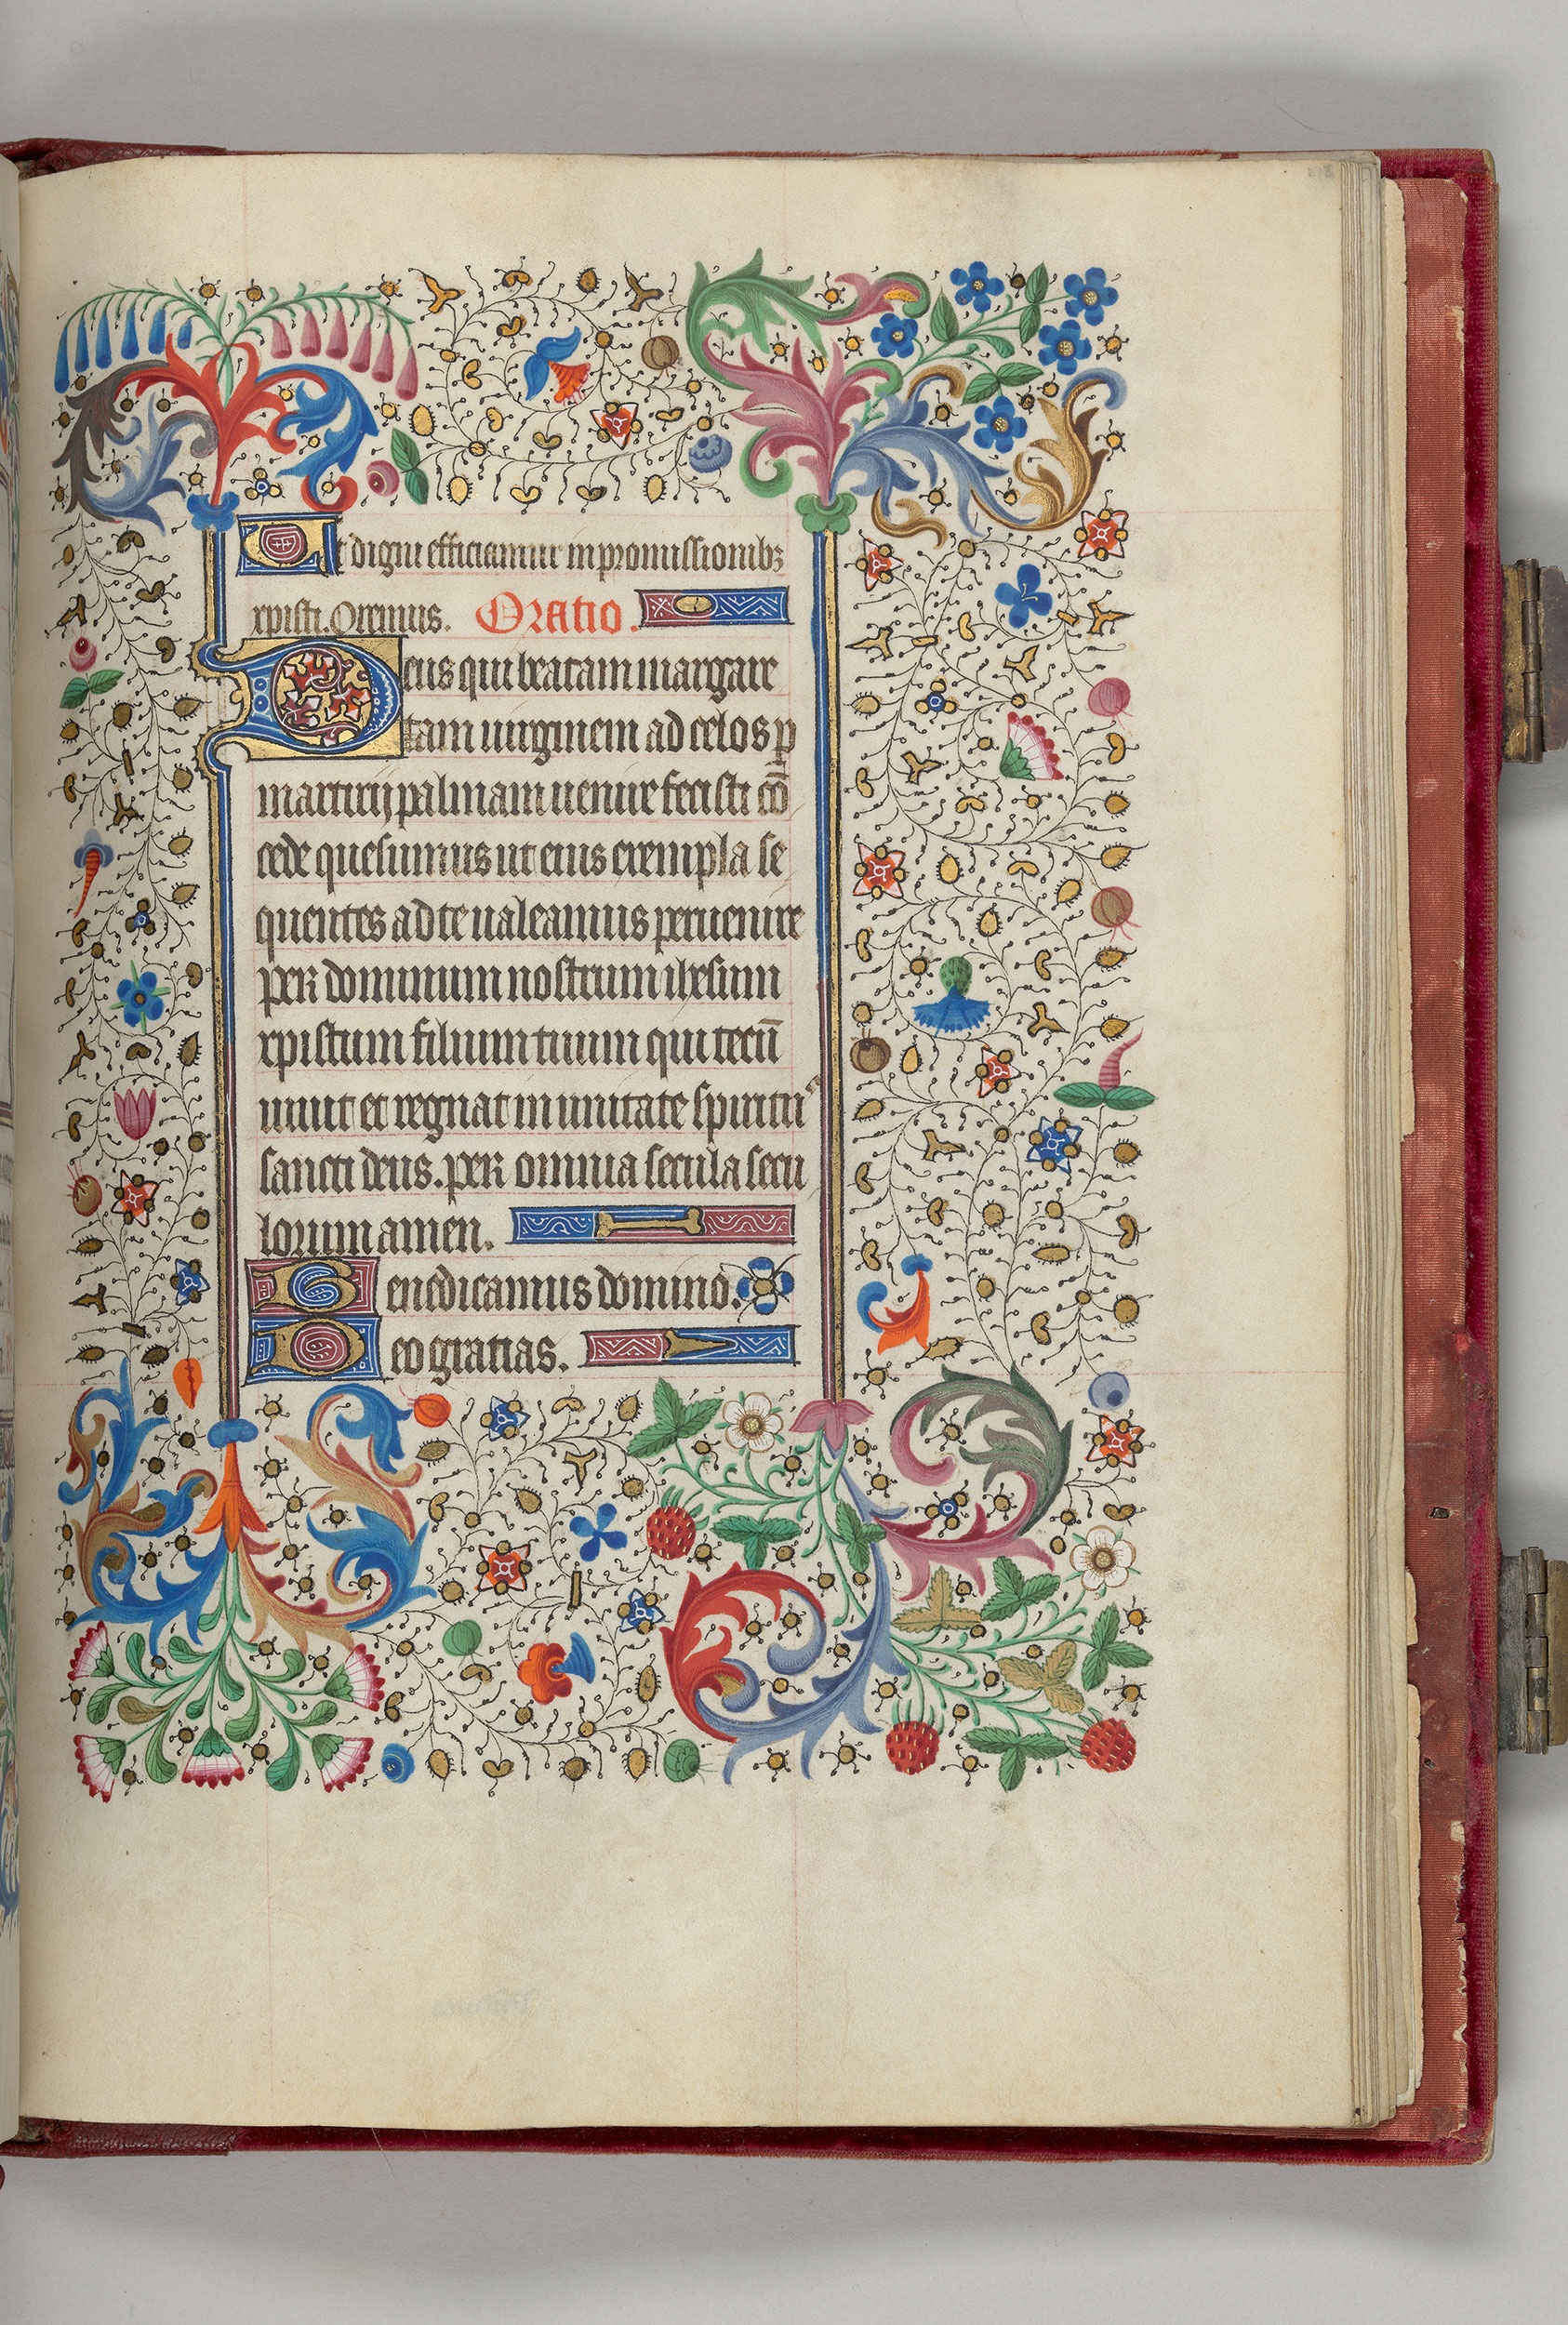 Ut digni efficiamur in promissionibꝫ
xpisti. Oremus. Oratio.
Deus qui beatam margare
tam uirginem ad celos ꝑ
martirij palmam uenire fecisti cō
cede quesumus ut eius exempla se
quentes ad te ualeamus peruenire
per dominum nostrum ihesum
xpistum filium tuum qui tecū
uiuit et regnat in unitate spiritu
sancti deus. per omnia secula secu
lorum amen.
Benedicamus domino.
Deo gratias.